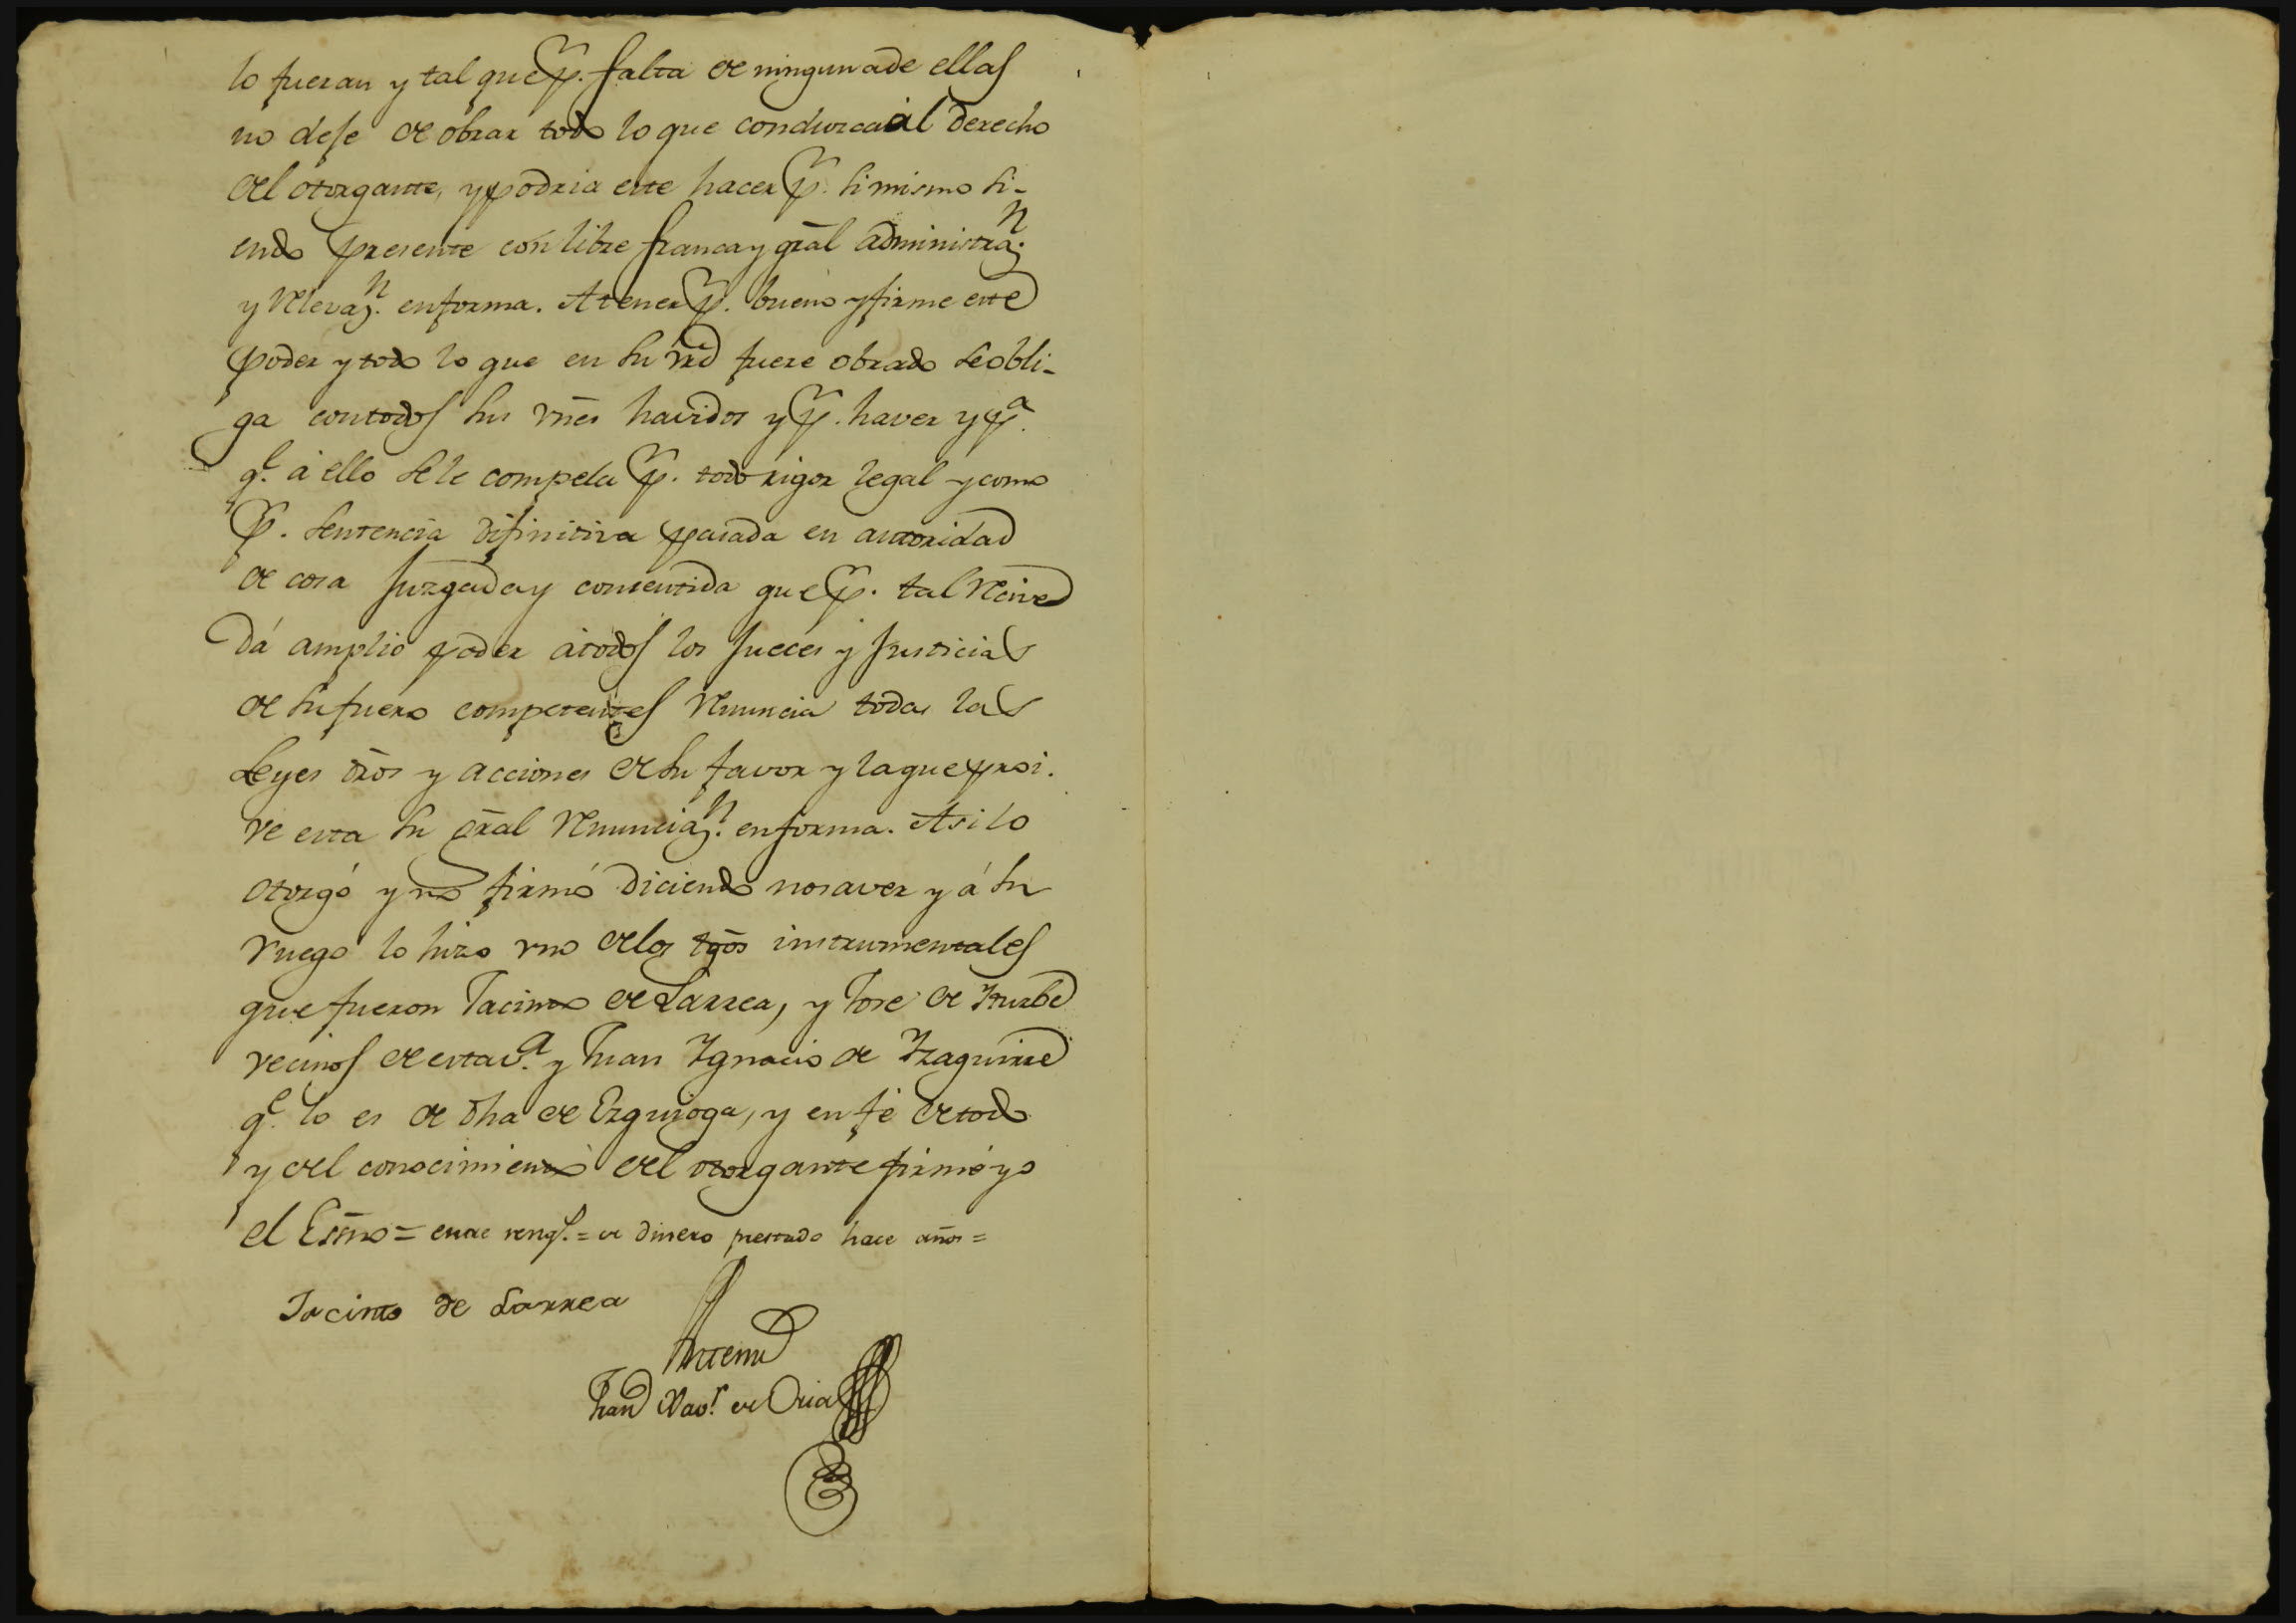 lo fueran y tal que p.r falta de ninguna de ellas
no deje de obrar todo lo que condurca al derecho
del otorgante, y podria este hacer p.r si mismo si-
endo presente con libre franca y grāl administraz.n
y relevaz.n en forma. A tener p.r bueno y firme este
poder y todo lo que en su vrd fuere obrado se obli-
ga con todos sus vnēs havidos y p.r haver y p.a
q.e à ello se le compela p.r todo rigor legal y como
p.r sentencia difinitiva pasada en autoridad
de cosa Juzgada y consentida que p.r tal recive
Dá amplio poder à todos los Jueces y Justicias
de su fuero competentes renuncia todas las
Leyes drōs y acciones de su favor y la que proi-
ve esta su grāl renunciaz.n en forma. Asi lo
otorgó y no firmó diciendo no saver y á su
ruego lo hizo vno de los tgōs instrumentales
que fueron Jacinto de Larrea, y Jose de Yturbe
vecinos de esta v.a y Juan Ygnacio de Yzaguirre
q.e lo es de dha de Ezquioga, y en fé de todo
y del conocimiento del otorgante firmé yo
el Esnō = entre rengs. = de dinero prestado hace años =
Jacinto de Larrea
Antemi
Fran.co Xav.r de Oria